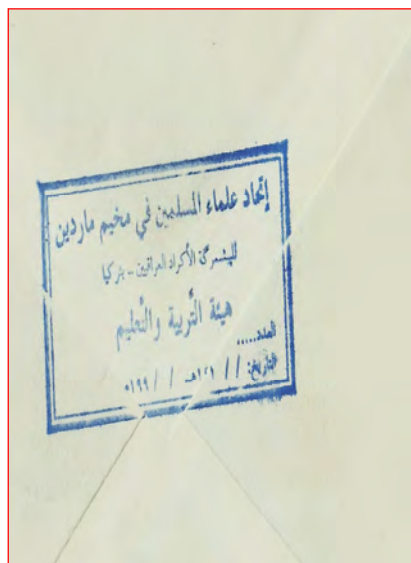 إتحاد علماء المسلمين في مخيم ماردين
للپيشمرگة الأكراد العراقيين - بتركيا
هيئة التّربية والتّعليم
العدد.....
التاريخ: / / ١٤١هـ / / ١٩٩٠